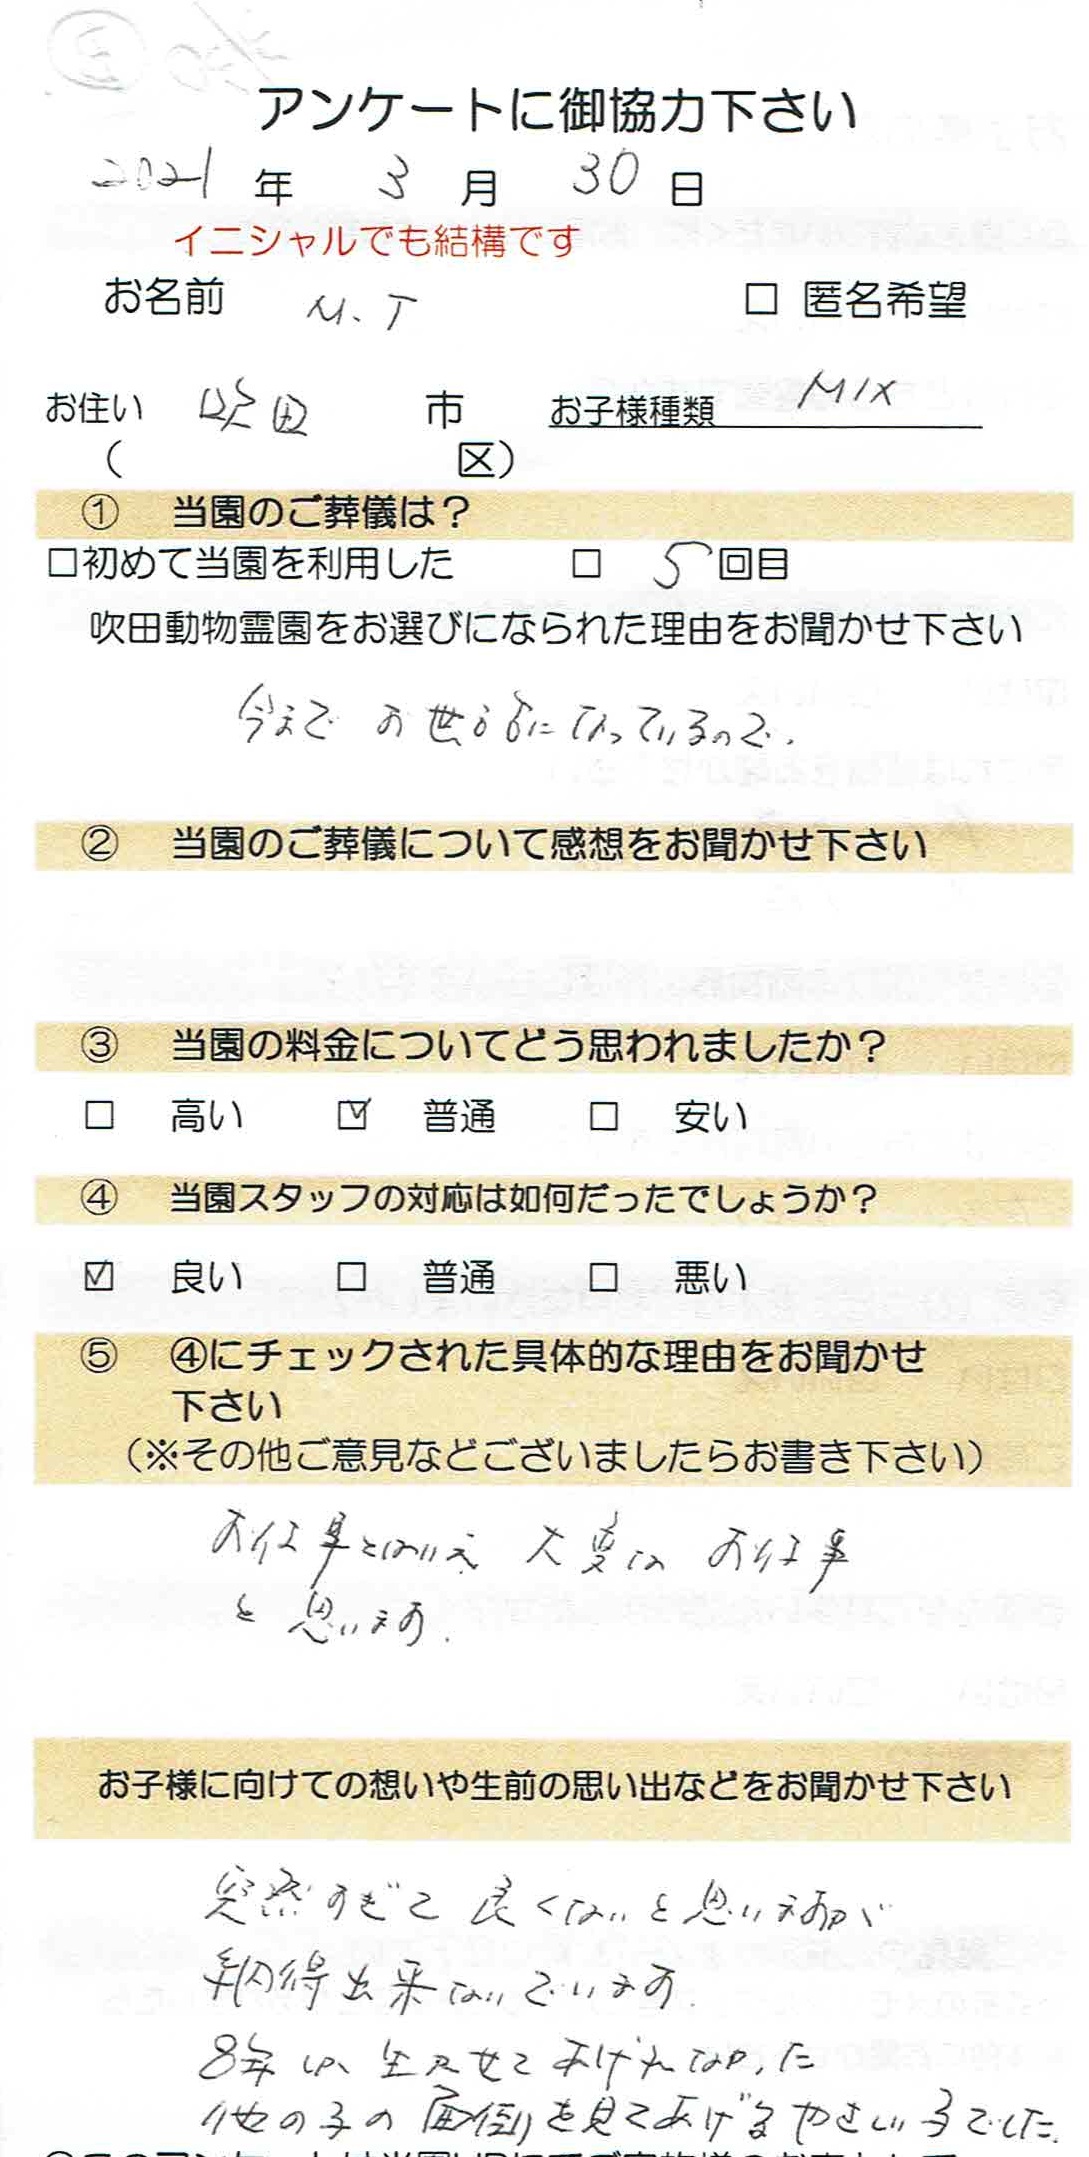 アンケートに御協力下さい
2021 年 3 月 30 日
イニシャルでも結構です
お名前 M.T □ 匿名希望
お住い 吹田 市 お子様種類 MIX
( 区)
① 当園のご葬儀は？
□初めて当園を利用した □ 5回目
吹田動物霊園をお選びになられた理由をお聞かせ下さい
今まで お世話になっているので.
② 当園のご葬儀について感想をお聞かせ下さい
③ 当園の料金についてどう思われましたか？
□ 高い ☑ 普通 □ 安い
④ 当園スタッフの対応は如何だったでしょうか？
☑ 良い □ 普通 □ 悪い
⑤ ④にチェックされた具体的な理由をお聞かせ
下さい
（※その他ご意見などございましたらお書き下さい）
お仕事とはいえ 大変な お仕事
と 思います.
お子様に向けての想いや生前の思い出などをお聞かせ下さい
突然すぎて 良くないと思いますが
納得出来ないでいます.
8年しか 生かせてあげれなかった
他の子の面倒を見てあげるやさしい子でした.